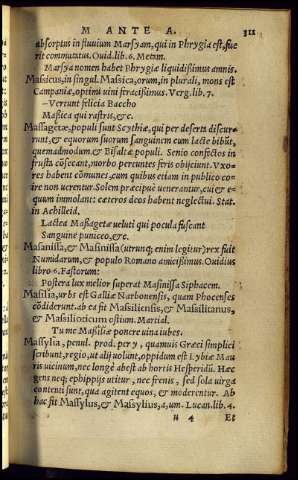 M ANTE A. 311
absorptus in fluvium Marsyam, qui in Phrygia est, fue
rit commutatus. Ouid. lib. 6. Metam.
Marsya nomen habet Phrygiæ liquidissimus amnis.
Massicus, in singul. Massica, orum, in plurali, mons est
Campaniæ, optimi uini feracissimus. Verg. lib. 7.
–Vertunt felicia Baccho
Massica qui rastris, &c.
Massagetæ, populi sunt Scythiæ, qui per deserta discur=
runt, & equorum suorum sanguinem cum lacte bibūt,
quemadmodum & Bisaltæ populi. Senio confectos in
frusta cōsecant, morbo peremptes feris obijciunt. Vxo=
res habent cōmunes, cum quibus etiam in publico co
ire non uerentur. Solem præcipuè uenerantur, cui & e=
quum immolant: cæteros deos habent neglectui. Stat.
in Achilleid.
Lactea Massagetæ ueluti qui pocula fuscant
Sanguine puniceo, &c.
Masanissa, & Masinissa (utrunq; enim legitur) rex fuit
Numidarum, & populo Romano amicissimus. Ouidius
libro 6. Fastorum:
Postera lux melior superat Masinissa Siphacem.
Massilia, urbs est Galliæ Narbonensis, quam Phocenses
cōdiderunt. ab ea fit Massiliensis, & Massilitanus,
& Massilioticum ostium. Martial.
Tu me Massiliæ ponere uina iubes.
Massylia, penul. prod. per y, quamuis Græci simplici
scribunt, regio, ut alij uolunt, oppidum est Lybiæ Mau
ris uicinum, nec longè abest ab hortis Hesperidū. Hæc
gens neq; ephippijs utitur, nec frenis, sed sola uirga
contenti sunt, qua agitent equos, & moderentur. Ab
hac fit Massylus, & Massylius, a, um. Lucan. lib. 4.
u 4 Et